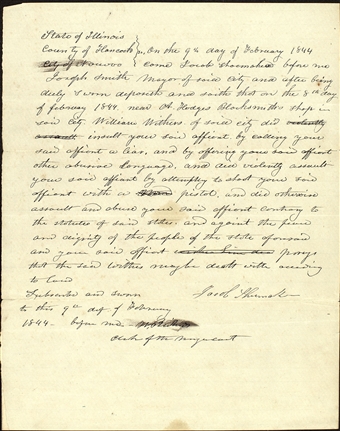 State of Illinois
County of Hancock } ss, On the 9th day of February 1844
City of Nauvoo } came Jacob Shoemaker before me
Joseph Smith Mayor of said City and after being
duly sworn deposeth and saith that on the 8th day
of february 1844. near A Hodges Blacksmith shop in
said city William Withers of said city did violently
assault insult your said affiant by calling your
said affiant a liar, and by offering your said affiant
other abusive language, and did violently assault
your said affiant by attempting to shoot your said
affiant with a pistol, and did otherwise
assault and abuse your said affiant contrary to
the statutes of said state and against the peace
and dignity of the people of the state aforesaid
and your said affiant prays
that the said Withers may be dealt with according
to Law
Subscribed and sworn
to this 9th day of February
1844 before me
Jacob
Clerk of the